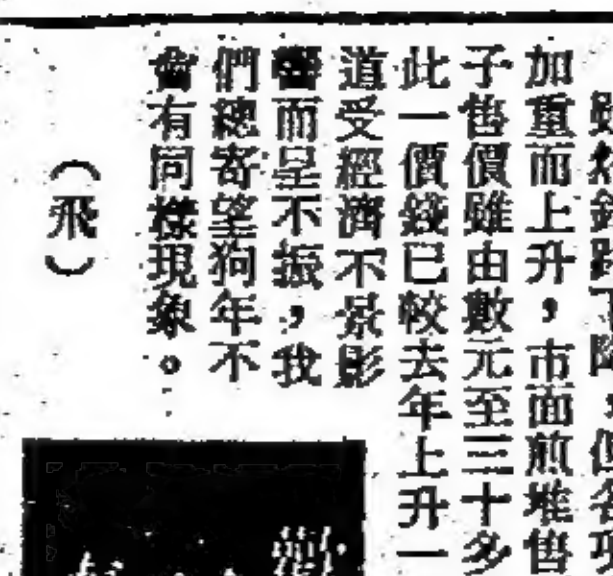 加重而上升，市面煎堆售
子售價雖由數元至三十多
此一價錢已較去年上升一
道受經濟不景影
響而呈不振，我
們總寄望狗年不
會有同樣現象。
（飛）